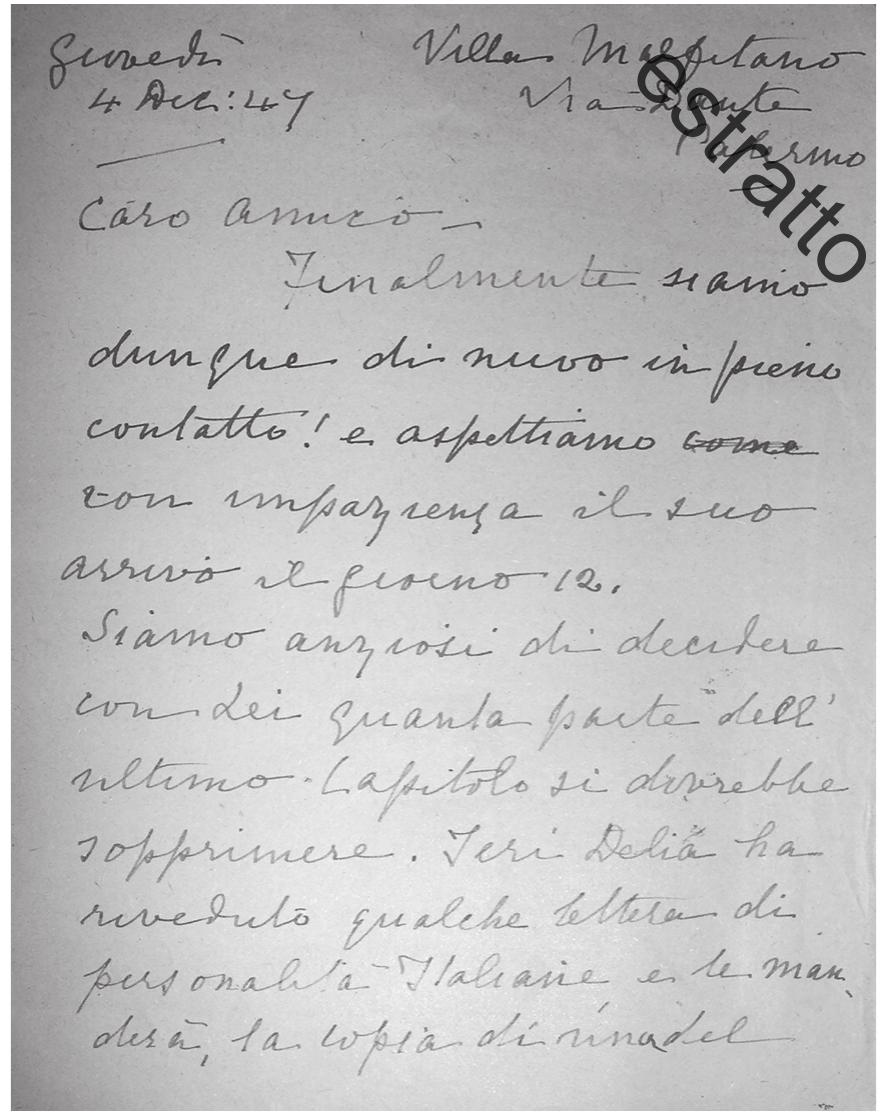 Giovedì Villa Malfitano
4 Dec: 47 Via Dante
Palermo
estratto
Caro Amico —
Finalmente siamo
dunque di nuovo in pieno
contatto! e aspettiamo come
con impazienza il suo
arrivo il giorno 12.
Siamo anziosi di decidere
con Lei quanta parte dell'
ultimo Capitolo si dovrebbe
sopprimere. Ieri Delia ha
riveduto qualche lettera di
personalità Italiane e le man
derà, la copia di una del